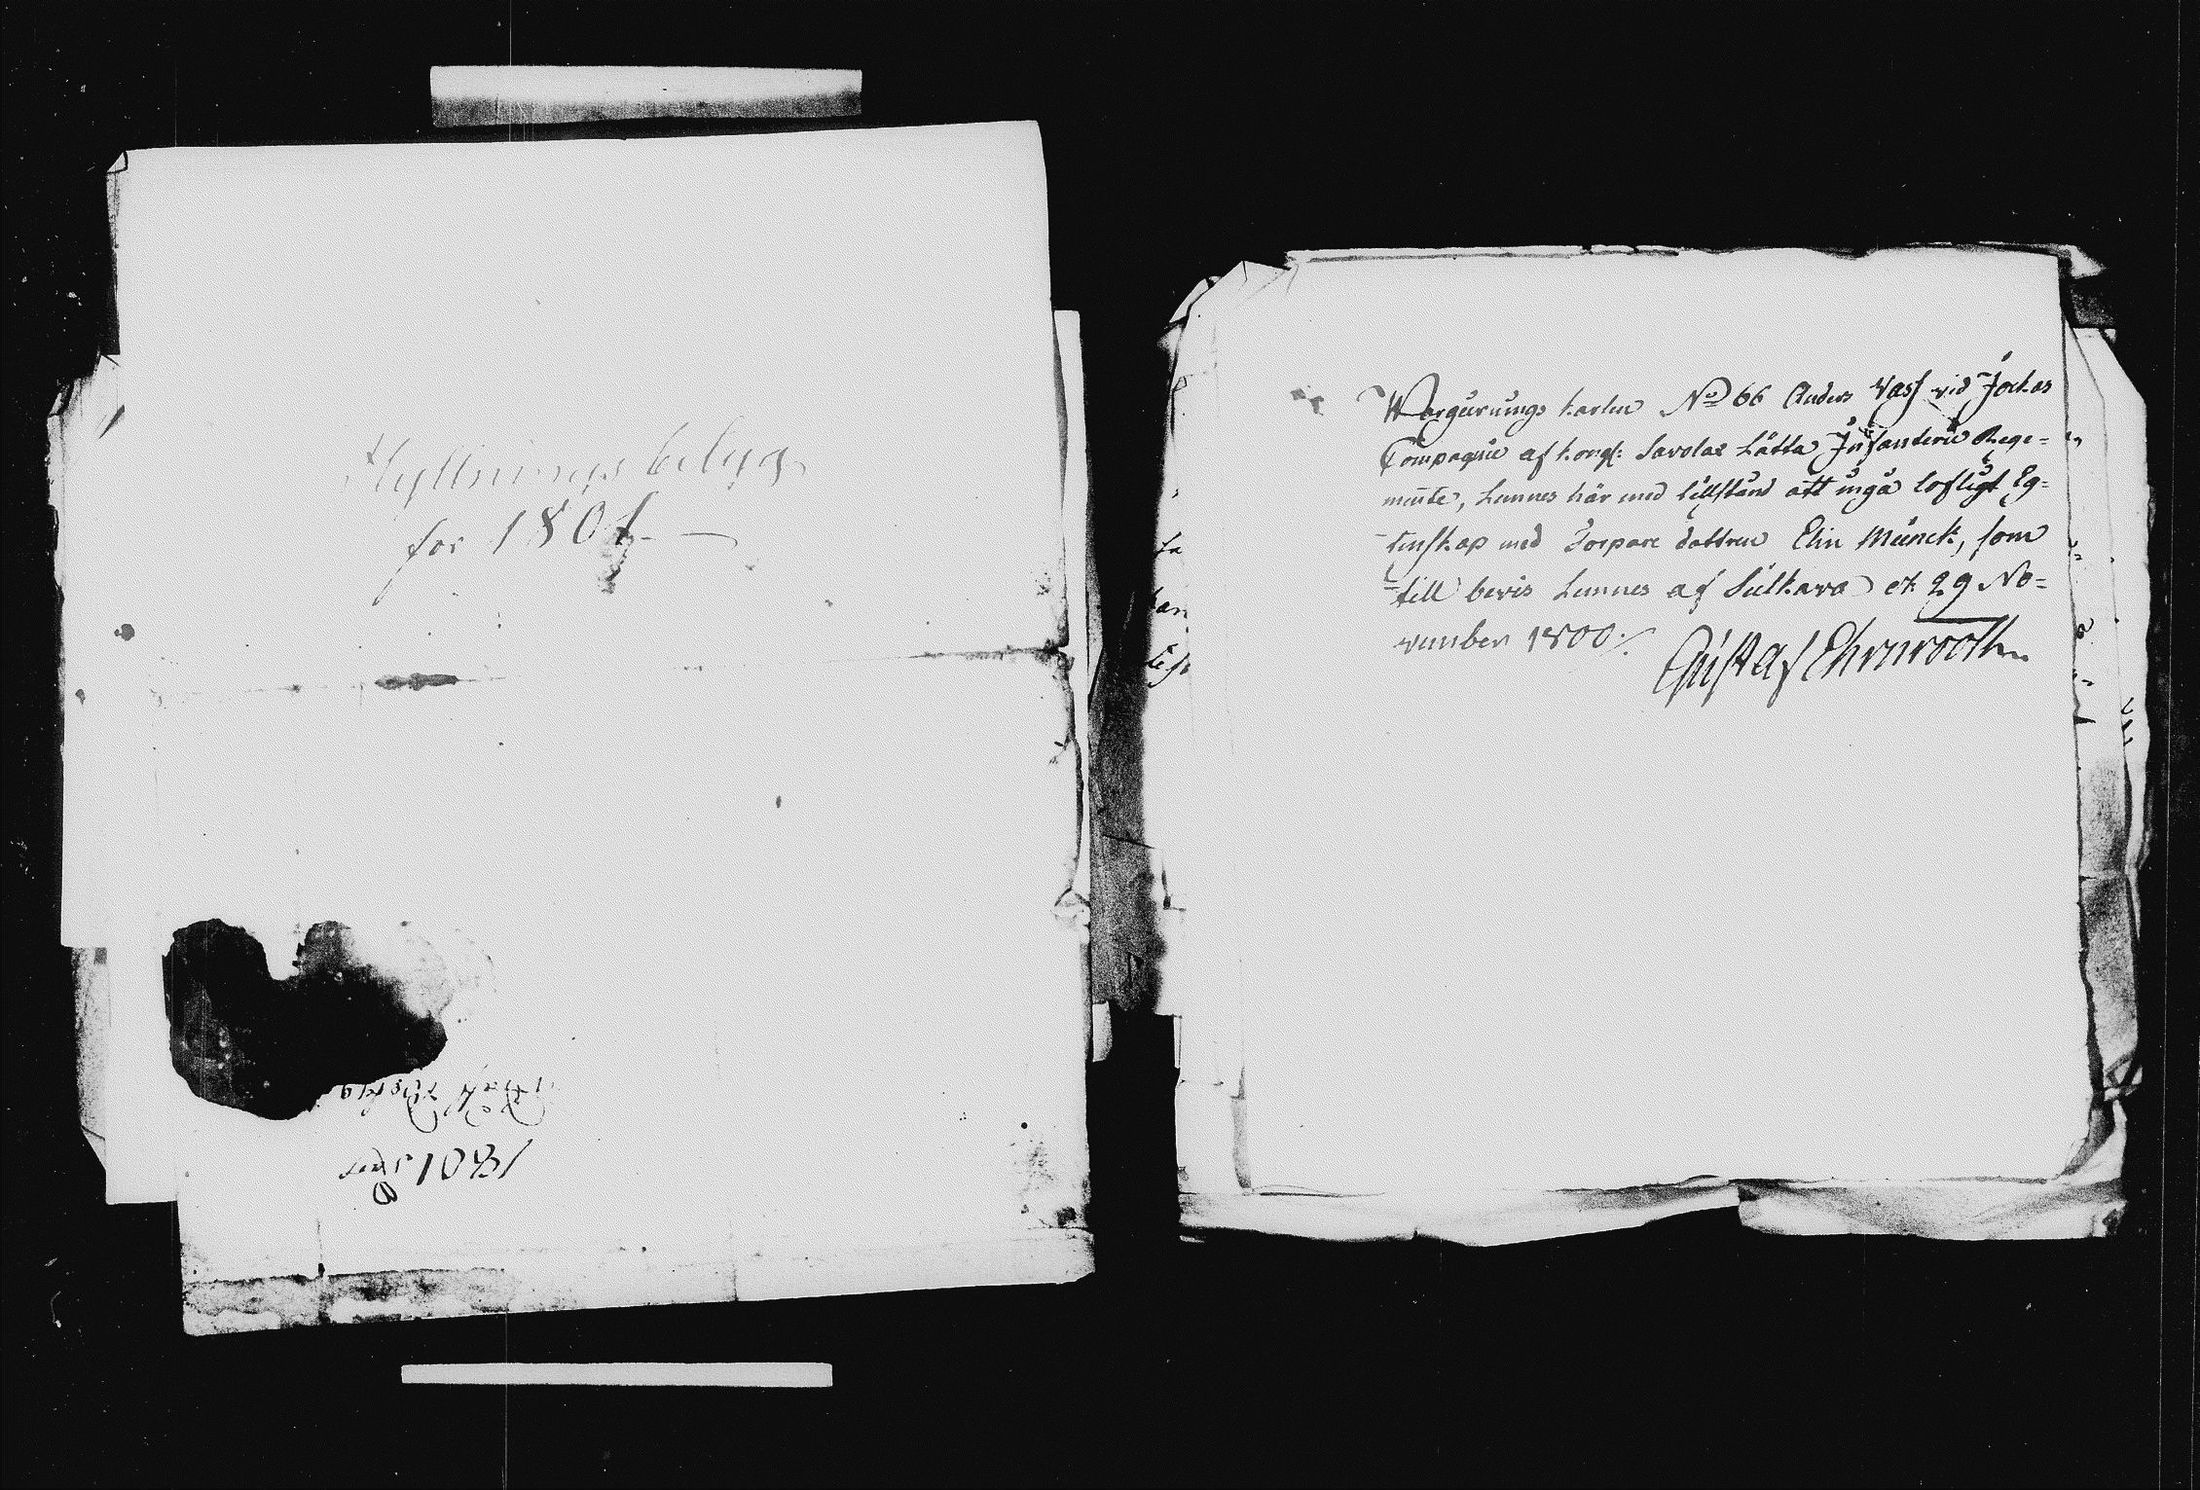 Flyttnings betyg
for 1801.
1801
Wargerings karlen No 66 Anders Vass vid Jockas
Compagnie af kongl: Savolax Lätta Infanterie Rege=
mente, Lemnes här med tillstånd att ingå lofligt Eg=
tenskap med Torpare dottren Elin Munck, som
till bevis Lemnes af Sulkava et 29 No=
vember 1800./.
Gustaf Ehrnrooth